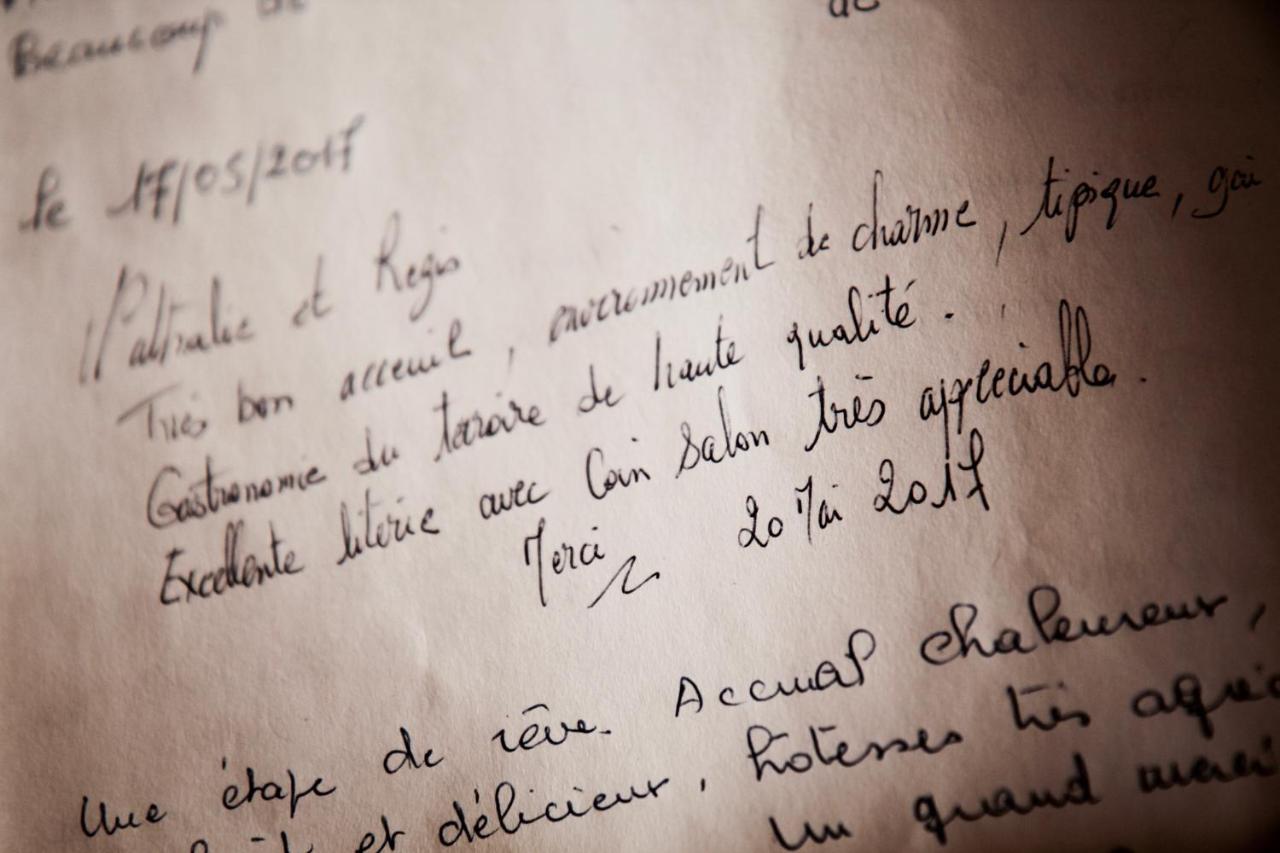 Beaucoup de
de
le 17/05/2017
et Regis
Très bon acceuil, environnement de charme, tipique, gai
Gastronomie du teroire de haute qualité.
Excellente literie avec Coin Salon très appreciable.
Merci 20 Mai 2017
Une étape de rêve. Accueil chaleureux,
et délicieux, hôtesses très
Un grand merci